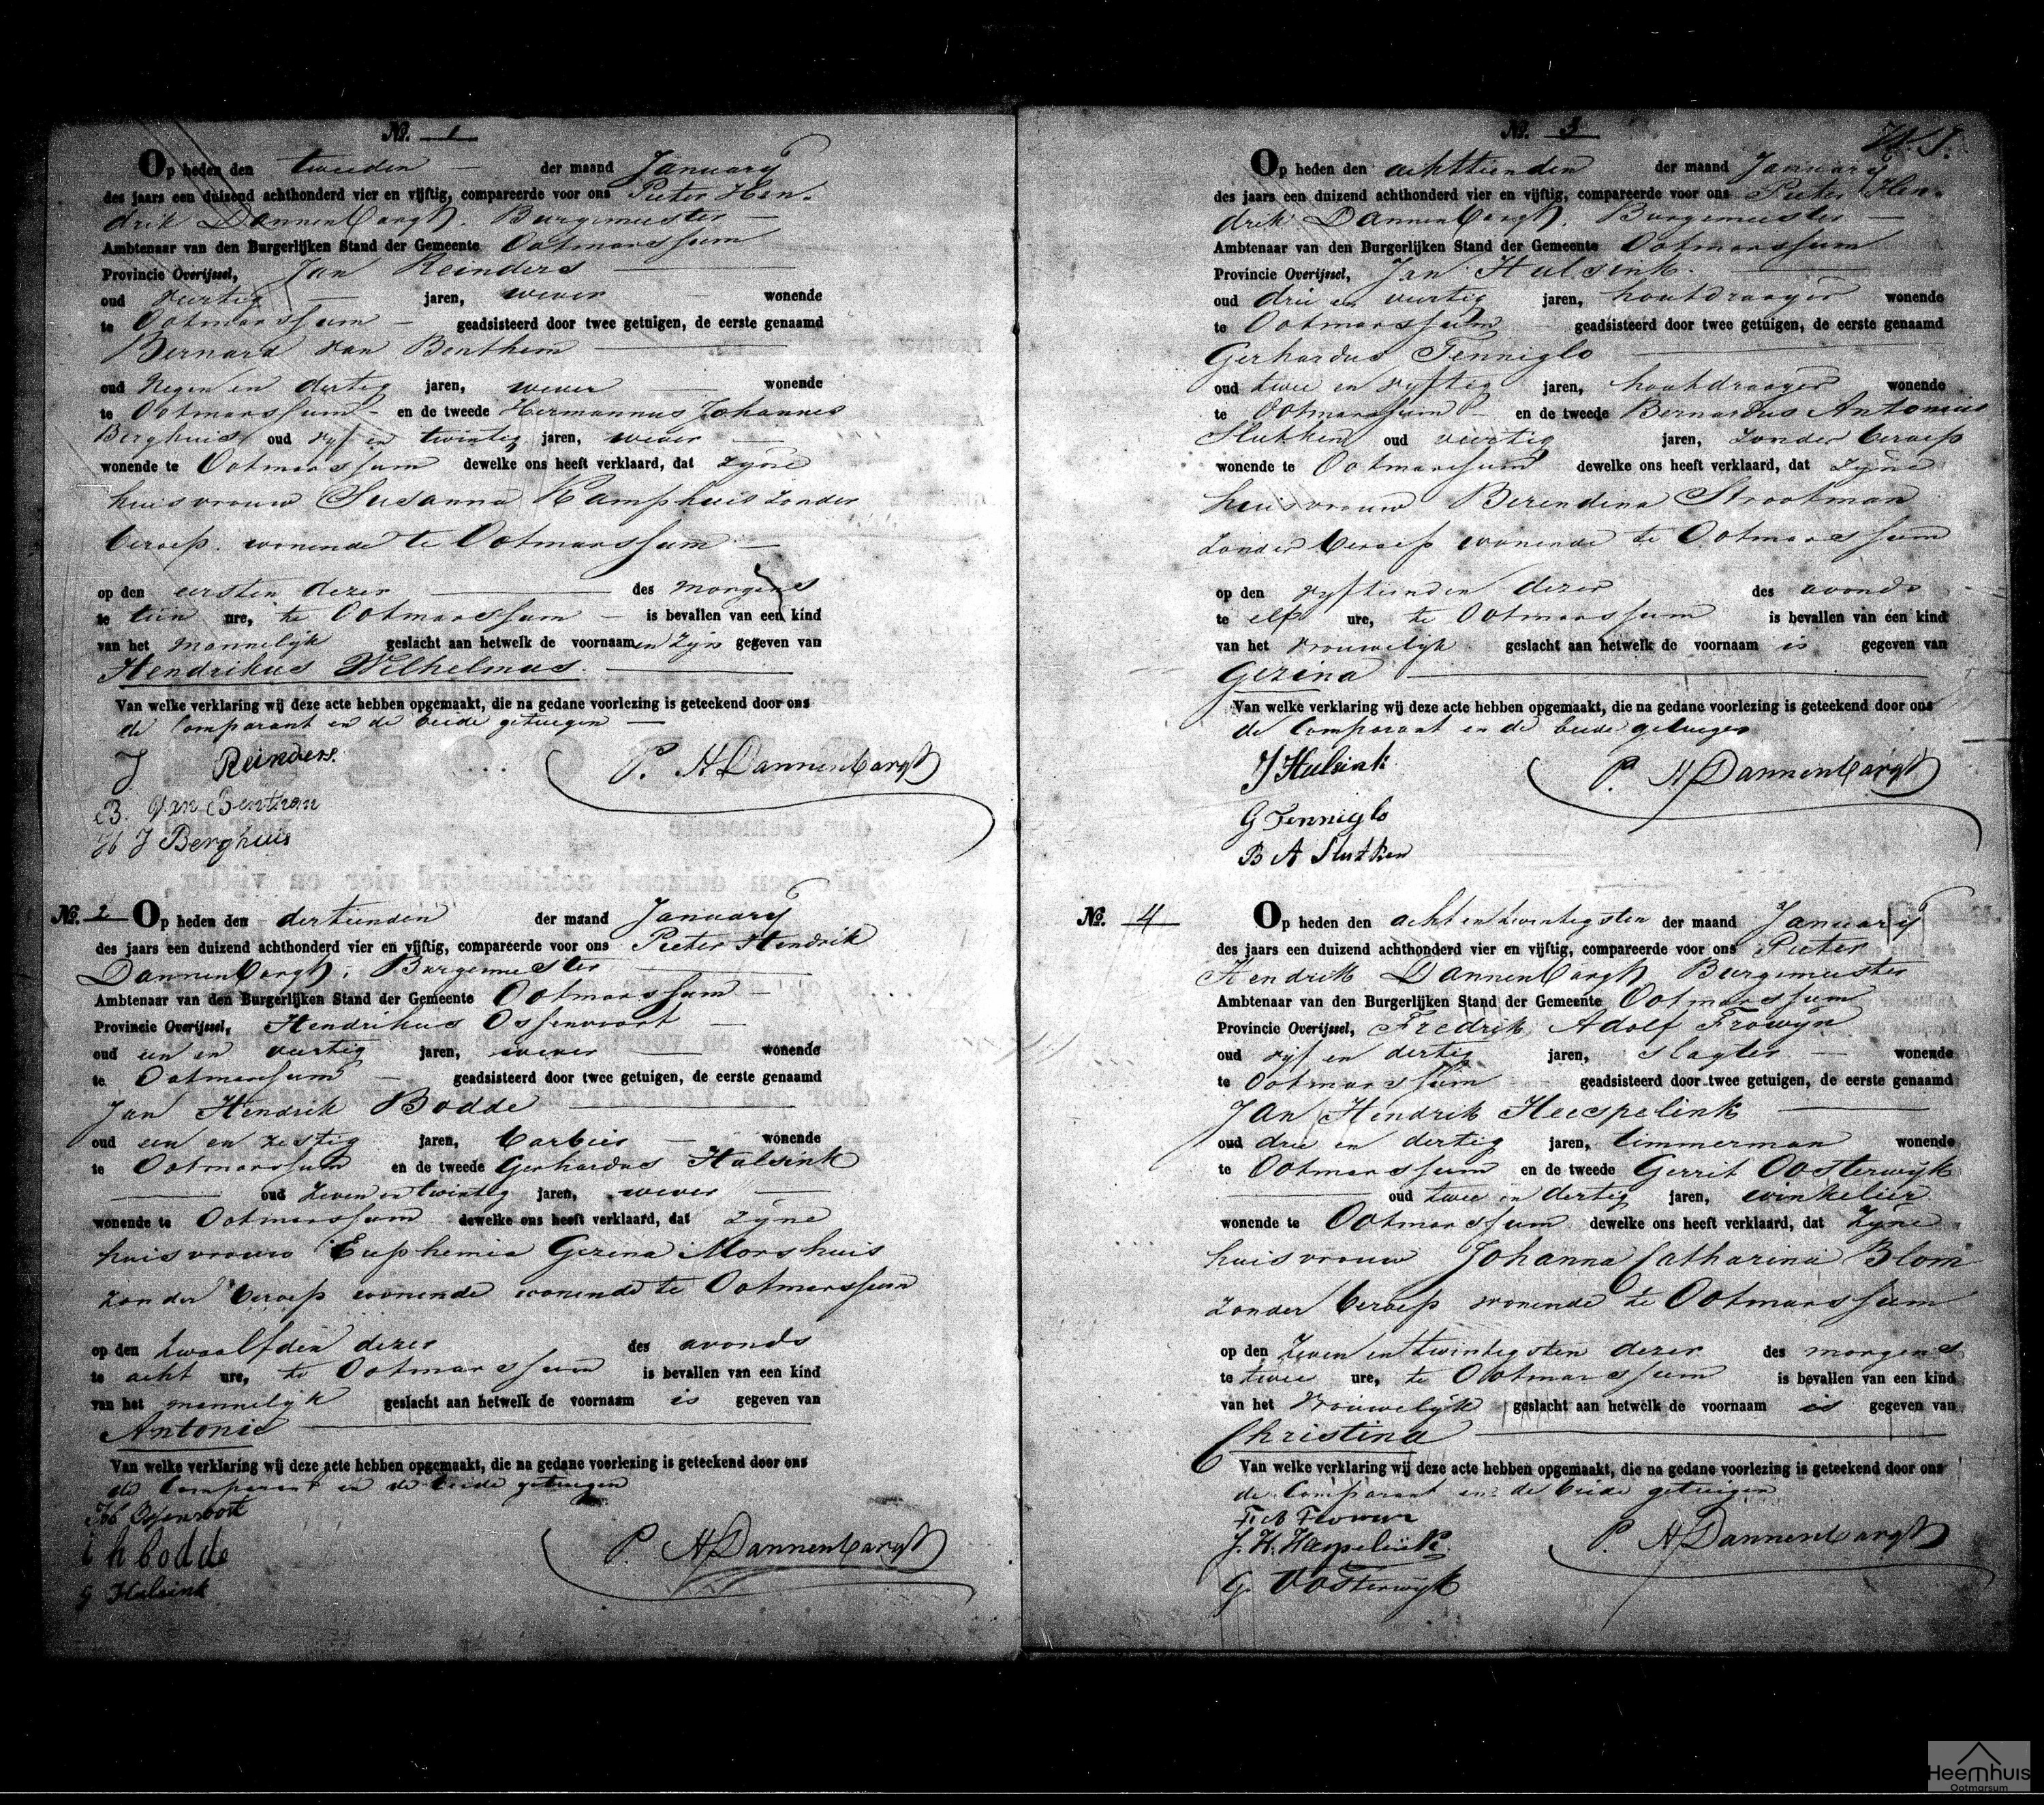 No. 1
Op heden den tweeden der maand January
des jaars een duizend achthonderd vier en vijftig, compareerde voor ons Pieter Hen-
drik Dannenbargh, Burgemeester
Ambtenaar van den Burgerlijken Stand der Gemeente Ootmarssum
Provincie Overijssel, Jan Reinders
oud veertig jaren, wever wonende
te Ootmarssum geadsisteerd door twee getuigen, de eerste genaamd
Bernard van Benthem
oud negen en dertig jaren, wever wonende
te Ootmarssum en de tweede Hermannus Johannes
Berghuis oud vyf en twintig jaren, wever
wonende te Ootmarssum dewelke ons heeft verklaard, dat zyne
huisvrouw Susanna Kamphuis zonder
beroep wonende te Ootmarssum
op den eersten dezer des morgens
te tien ure, te Ootmarssum is bevallen van een kind
van het mannelyk geslacht aan hetwelk de voornaamen zyn gegeven van
Hendrikus Wilhelmus.
Van welke verklaring wij deze acte hebben opgemaakt, die na gedane voorlezing is geteekend door ons
de Comparant en de beide getuigen
J Reinders.
P. H Dannenbargh
B. van Benthem
H J Berghuis
No. 2 Op heden den dertienden der maand January
des jaars een duizend achthonderd vier en vijftig, compareerde voor ons Pieter Hendrik
Dannenbargh, Burgemeester
Ambtenaar van den Burgerlijken Stand der Gemeente Ootmarssum
Provincie Overijssel, Hendrikus Ossenvoort
oud een en veertig jaren, wever wonende
te Ootmarssum geadsisteerd door twee getuigen, de eerste genaamd
Jan Hendrik Bodde
oud een en zestig jaren, barbier wonende
te Ootmarssum en de tweede Gerhardus Hulsink
oud zeven en twintig jaren, wever
wonende te Ootmarssum dewelke ons heeft verklaard, dat zyne
huisvrouw Euphemia Gezina Morshuis
zonder beroep wonende wonende te Ootmarssum
op den twaalfden dezer des avonds
te acht ure, te Ootmarssum is bevallen van een kind
van het mannelyk geslacht aan hetwelk de voornaam is gegeven van
Antonie
Van welke verklaring wij deze acte hebben opgemaakt, die na gedane voorlezing is geteekend door ons
de Comparant en de beide getuigen
Ossenvoort
i h bodde
P. H Dannenbargh
G Hulsink
No. 3
Op heden den achttienden der maand January
des jaars een duizend achthonderd vier en vijftig, compareerde voor ons Pieter Hen-
drik Dannenbargh, Burgemeester
Ambtenaar van den Burgerlijken Stand der Gemeente Ootmarssum
Provincie Overijssel, Jan Hulsink.
oud drie en veertig jaren, houtdraayer wonende
te Ootmarssum geadsisteerd door twee getuigen, de eerste genaamd
Gerhardus Fenniglo
oud twee en vyftig jaren, houtdraayer wonende
te Ootmarssum en de tweede Bernardus Antonius
Slutken oud veertig jaren, zonder beroep
wonende te Ootmarssum dewelke ons heeft verklaard, dat zyne
huisvrouw Berendina Strootman
zonder beroep wonende te Ootmarssum
op den vyftienden dezer des avonds
te elf ure, te Ootmarssum is bevallen van een kind
van het vrouwelyk geslacht aan hetwelk de voornaam is gegeven van
Gezina
Van welke verklaring wij deze acte hebben opgemaakt, die na gedane voorlezing is geteekend door ons
de Comparant en de beide getuigen
J Hulsink
P. H Dannenbargh
G Fenniglo
B A Slutken
No. 4 Op heden den acht en twintigsten der maand January
des jaars een duizend achthonderd vier en vijftig, compareerde voor ons Pieter
Hendrik Dannenbargh Burgemeester
Ambtenaar van den Burgerlijken Stand der Gemeente Ootmarssum
Provincie Overijssel, Fredrik Adolf Frowyn
oud vyf en dertig jaren, slagter wonende
te Ootmarssum geadsisteerd door twee getuigen, de eerste genaamd
Jan Hendrik Heespelink
oud drie en dertig jaren, timmerman wonende
te Ootmarssum en de tweede Gerrit Oosterwyk
oud twee en dertig jaren, winkelier
wonende te Ootmarssum dewelke ons heeft verklaard, dat zyne
huisvrouw Johanna Catharina Blom
zonder beroep wonende te Ootmarssum
op den zeven en twintigsten dezer des morgens
te twee ure, te Ootmarssum is bevallen van een kind
van het vrouwelyk geslacht aan hetwelk de voornaam is gegeven van
Christina
Van welke verklaring wij deze acte hebben opgemaakt, die na gedane voorlezing is geteekend door ons
de Comparant en de beide getuigen
J. H. Haspelink
P. H Dannenbargh
G. Oosterwyk
Heemhuis
Ootmarsum